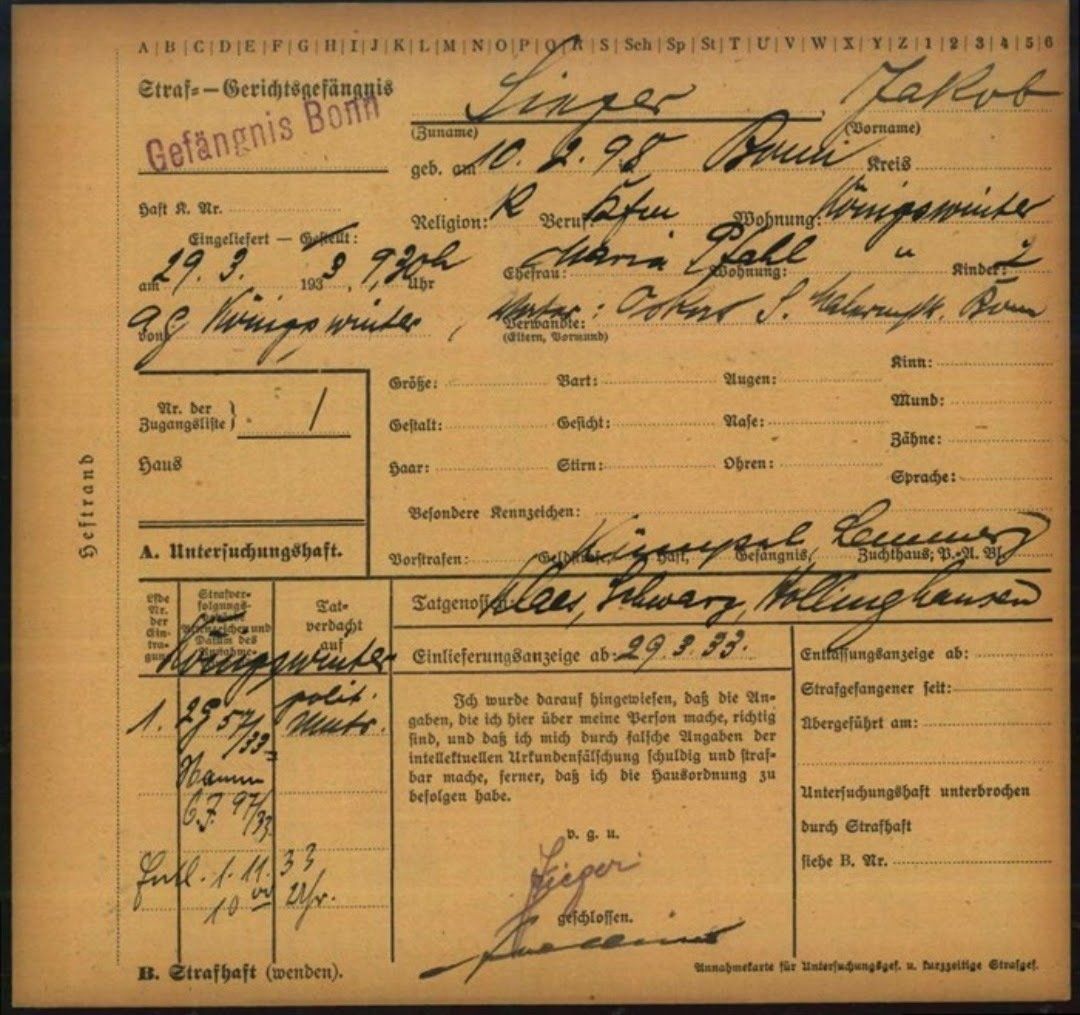 A|B|C|D|E|F|G|H|I|J|K|L|M|N|O|P|Q|R|S|Sch|Sp|St|T|U|V|W|X|Y|Z|1|2|3|4|5|6
Straf=—Gerichtsgefängnis
Gefängnis Bonn
Jakob
(Zuname) (Vorname)
geb. am 10. 2. 98 Bonn Kreis
Haft K. Nr.
Religion: K Beruf: Wohnung: Königswinter
Eingeliefert — Gestellt:
am 29. 3. 1933, 9,30h Uhr
Ehefrau: Maria Pfahl Wohnung: " Kinder: 2
von Königswinter
Verwandte: Bonn
(Eltern, Vormund)
Größe: Bart: Augen: Kinn:
Mund:
Nr. der Zugangsliste } 1
Gestalt: Gesicht: Nase:
Zähne:
Haus
Haar: Stirn: Ohren:
Sprache:
Besondere Kennzeichen:
A. Untersuchungshaft.
Vorstrafen: Geldstrafe, Haft, Gefängnis, Zuchthaus; P.=A. Bl.
Heftrand
Tatgenossen: Klaes, Schwarz, Hollinghausen
Lfde Nr. der Ein-tragung
Strafver-folgungs-
Aktenzeichen und
Datum des
Tat-
verdacht
auf
Königswinter
Einlieferungsanzeige ab: 29. 3. 33.
Entlassungsanzeige ab:
Strafgefangener seit:
Übergeführt am:
1. 2 G 57/33 polit.
Hamm
O.J. 97/33
Entl. 1. 11. 33
10 00 Uhr.
Ich wurde darauf hingewiesen, daß die An-
gaben, die ich hier über meine Person mache, richtig
sind, und daß ich mich durch falsche Angaben der
intellektuellen Urkundenfälschung schuldig und straf-
bar mache, ferner, daß ich die Hausordnung zu
befolgen habe.
v. g. u.
geschlossen.
Untersuchungshaft unterbrochen
durch Strafhaft
siehe B. Nr.
B. Strafhaft (wenden).
Annahmekarte für Untersuchungsgef. u. kurzzeitige Strafgef.